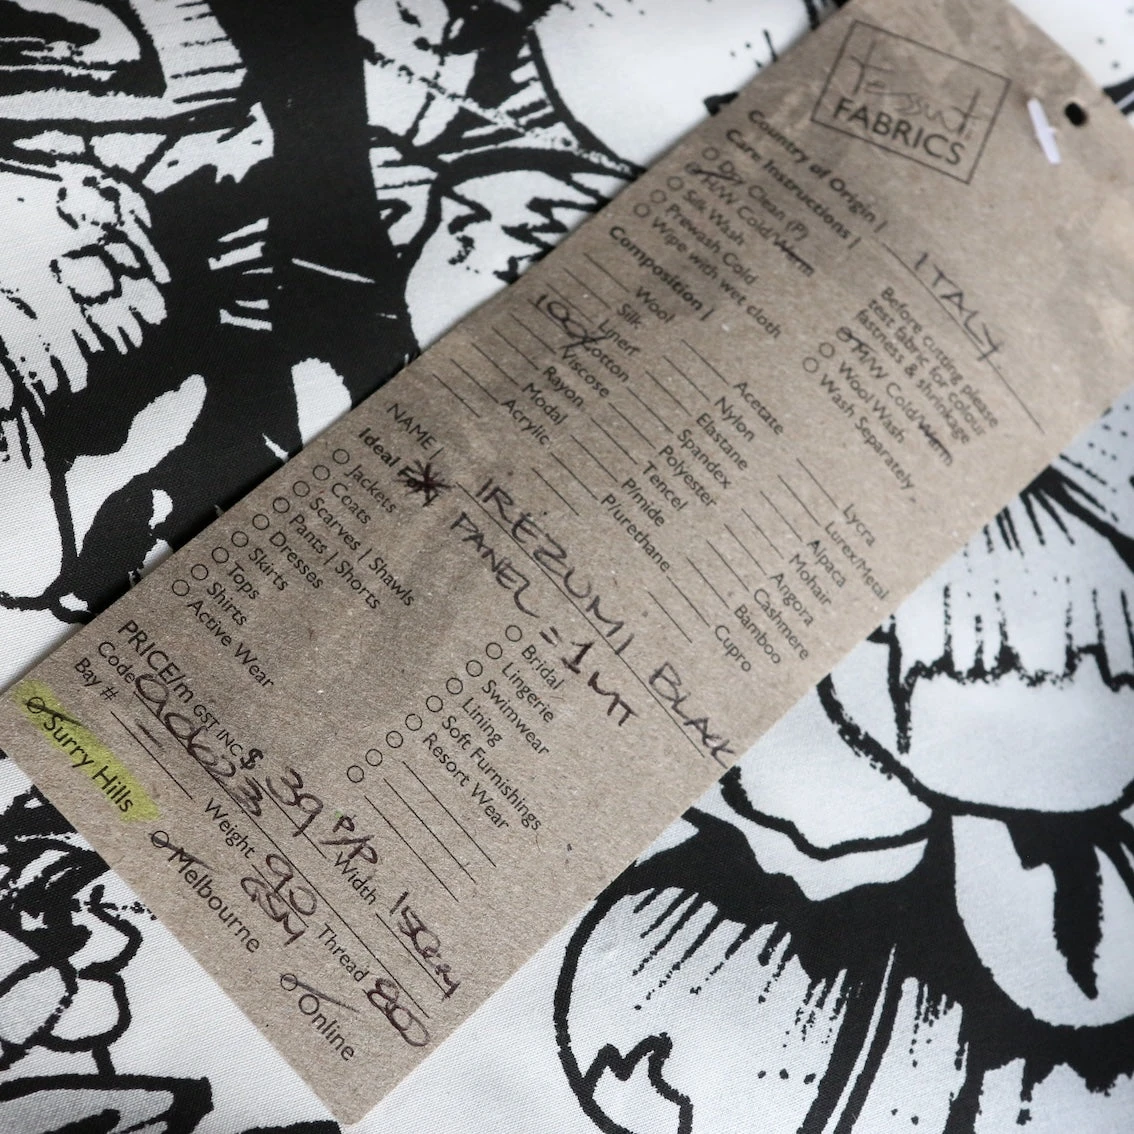 Tessuti
FABRICS
Country of Origin | ITALY
Care Instructions |
Dry Clean (P)
M/W Cold/Warm
Silk Wash
Prewash Cold
Wipe with wet cloth
Before cutting please
test fabric for colour
fastness & shrinkage
M/W Cold/Warm
Wool Wash
Wash Separately
Composition |
Wool
Silk
Linen
100% Cotton
Viscose
Rayon
Modal
Acrylic
Acetate
Nylon
Elastane
Spandex
Polyester
Tencel
P/mide
P/urethane
Lycra
Lurex/Metal
Alpaca
Mohair
Angora
Cashmere
Bamboo
Cupro
NAME | IREZUMI BLACK
Ideal For | PANEL = 1 MT
Jackets
Coats
Scarves | Shawls
Pants | Shorts
Dresses
Skirts
Tops
Shirts
Active Wear
Bridal
Lingerie
Swimwear
Lining
Soft Furnishings
Resort Wear
PRICE/m GST INC $ 39 P/P
Width 150cm
Code
Weight 90 GSM
Thread 800
Bay #
Surry Hills
Melbourne
Online